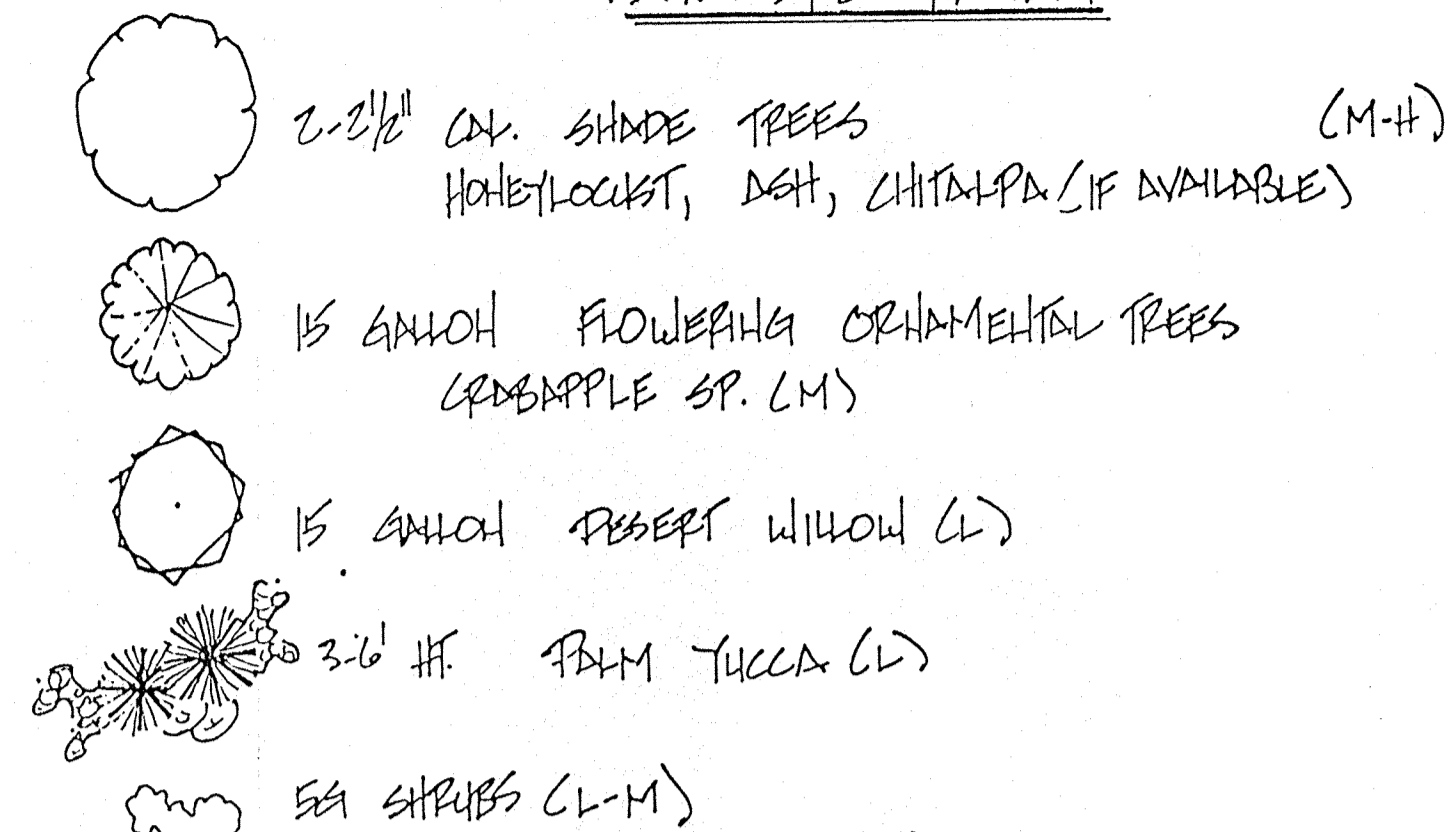 2-2½" CAL. SHADE TREES (M-H)
HONEYLOCUST, ASH, CHITALPA (IF AVAILABLE)
15 GALLON FLOWERING ORNAMENTAL TREES
CRABAPPLE SP. (M)
15 GALLON DESERT WILLOW (L)
3-6' HT. PALM YUCCA (L)
5G SHRUBS (L-M)